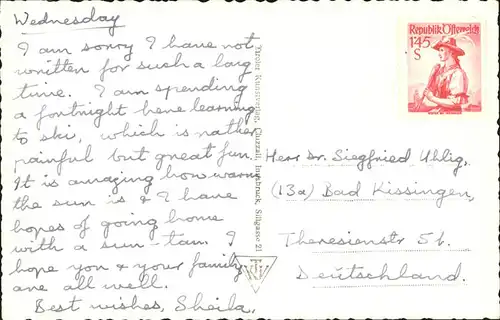 Wednesday
I am sorry I have not
written for such a long
time. I am spending
a fortnight here learning
to ski, which is rather
painful but great fun.
It is amazing how warm
the sun is & I have
hopes of going home
with a sun-tan. I
hope you & your family
are all well.
Best wishes, Sheila.
Tiroler Kunstverlag, Chizzali, Innsbruck, Sillgasse 21
Republik Österreich
145
S
Herr Dr. Siegfried Uhlig,
(13a) Bad Kissingen,
Theresienstr 51.
Deutschland.